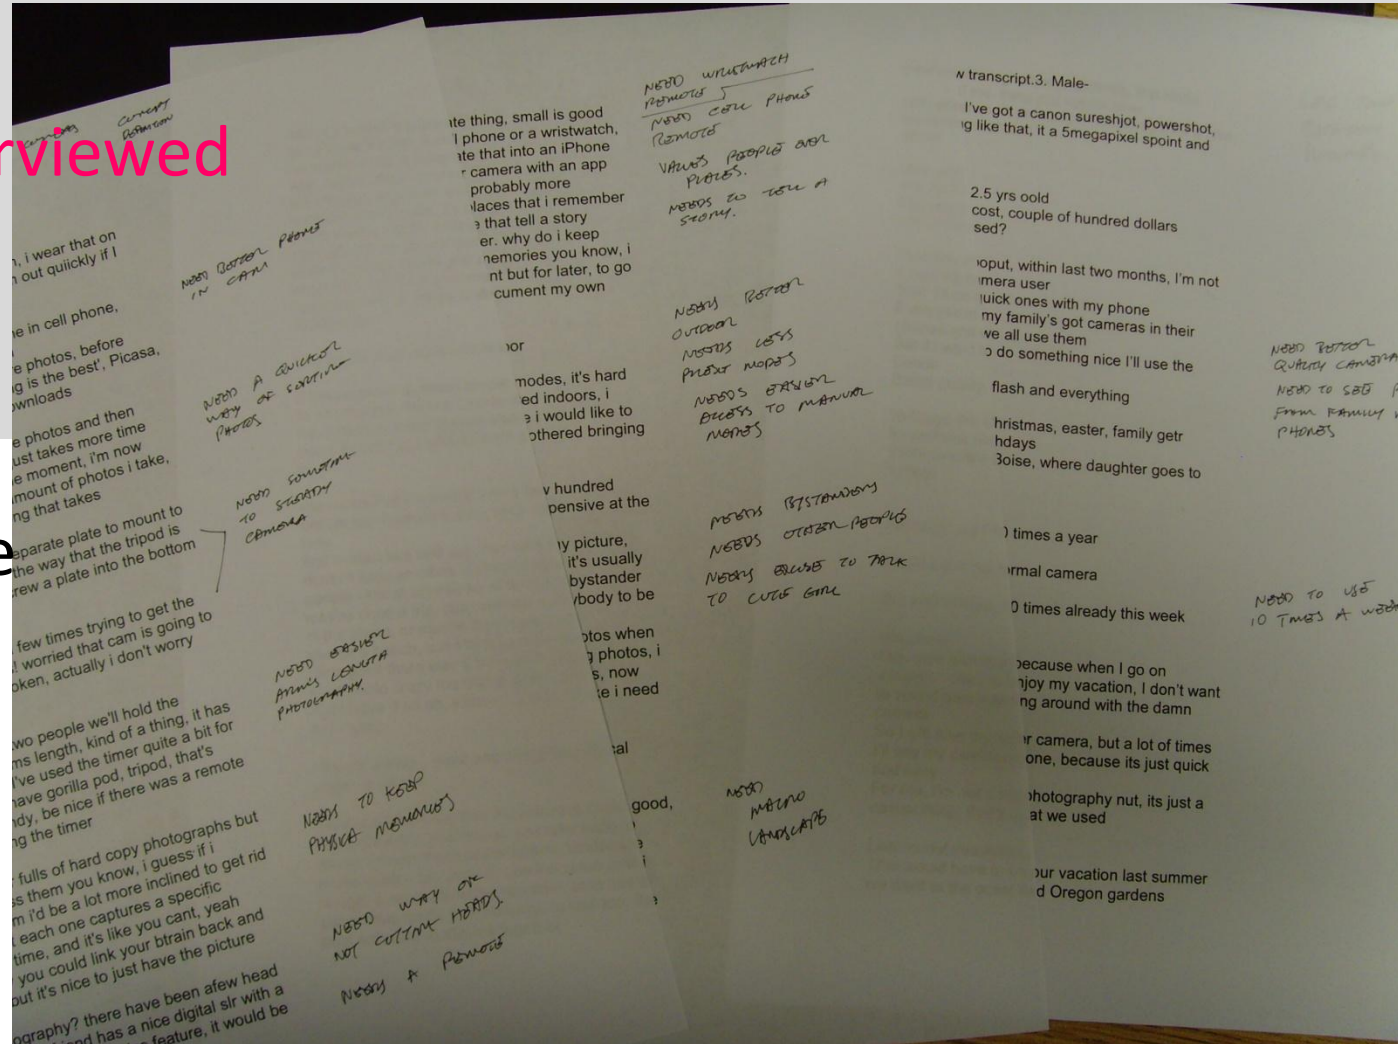 rviewed
e
n, i wear that on
out quiickly if I
ne in cell phone,
e photos, before
g is the best', Picasa,
wnloads
e photos and then
ust takes more time
e moment, i'm now
mount of photos i take,
ng that takes
eparate plate to mount to
the way that the tripod is
rew a plate into the bottom
few times trying to get the
! worried that cam is going to
oken, actually i don't worry
wo people we'll hold the
ms length, kind of a thing, it has
I've used the timer quite a bit for
have gorilla pod, tripod, that's
ndy, be nice if there was a remote
ng the timer
fulls of hard copy photographs but
ss them you know, i guess if i
m i'd be a lot more inclined to get rid
t each one captures a specific
time, and it's like you cant, yeah
you could link your btrain back and
out it's nice to just have the picture
ography? there have been afew head
end has a nice digital slr with a
feature, it would be
NEED BETTER PHONE
IN CAM
NEED A QUICKER
WAY OF SORTING
PHOTOS
NEED SOMETHING
TO STEADY
CAMERA
NEED EASIER
ARMS LENGTH
PHOTOGRAPHY.
NEEDS TO KEEP
PHYSICAL MEMORIES
NEED WAY OF
NOT CUTTING HEADS.
NEEDS A REMOTE
ate thing, small is good
l phone or a wristwatch,
ate that into an iPhone
r camera with an app
probably more
laces that i remember
e that tell a story
er. why do i keep
nemories you know, i
nt but for later, to go
cument my own
oor
modes, it's hard
ed indoors, i
e i would like to
othered bringing
v hundred
pensive at the
ny picture,
it's usually
bystander
ybody to be
otos when
g photos, i
s, now
ke i need
cal
good,
NEED WRISTWATCH
REMOTE
NEED CELL PHONE
REMOTE
VALUES PEOPLE OVER
PLACES.
NEEDS TO TELL A
STORY.
NEEDS BETTER
OUTDOOR
NEEDS LESS
PRESET MODES
NEEDS EASIER
ACCESS TO MANUAL
MODES
NEEDS BYSTANDERS
NEEDS OTHER PEOPLE
NEEDS EXCUSE TO TALK
TO CUTE GIRL
NEED
MACRO
LANDSCAPE
w transcript.3. Male-
I've got a canon sureshjot, powershot,
g like that, it a 5megapixel spoint and
2.5 yrs oold
cost, couple of hundred dollars
sed?
oput, within last two months, I'm not
mera user
uick ones with my phone
my family's got cameras in their
we all use them
o do something nice I'll use the
flash and everything
hristmas, easter, family getr
hdays
Boise, where daughter goes to
0 times a year
ormal camera
0 times already this week
because when I go on
njoy my vacation, I don't want
ng around with the damn
r camera, but a lot of times
one, because its just quick
photography nut, its just a
at we used
our vacation last summer
d Oregon gardens
NEED BETTER
QUALITY CAMERA
NEED TO SEE P
FROM FAMILY
PHONES
NEED TO USE
10 TIMES A WEEK